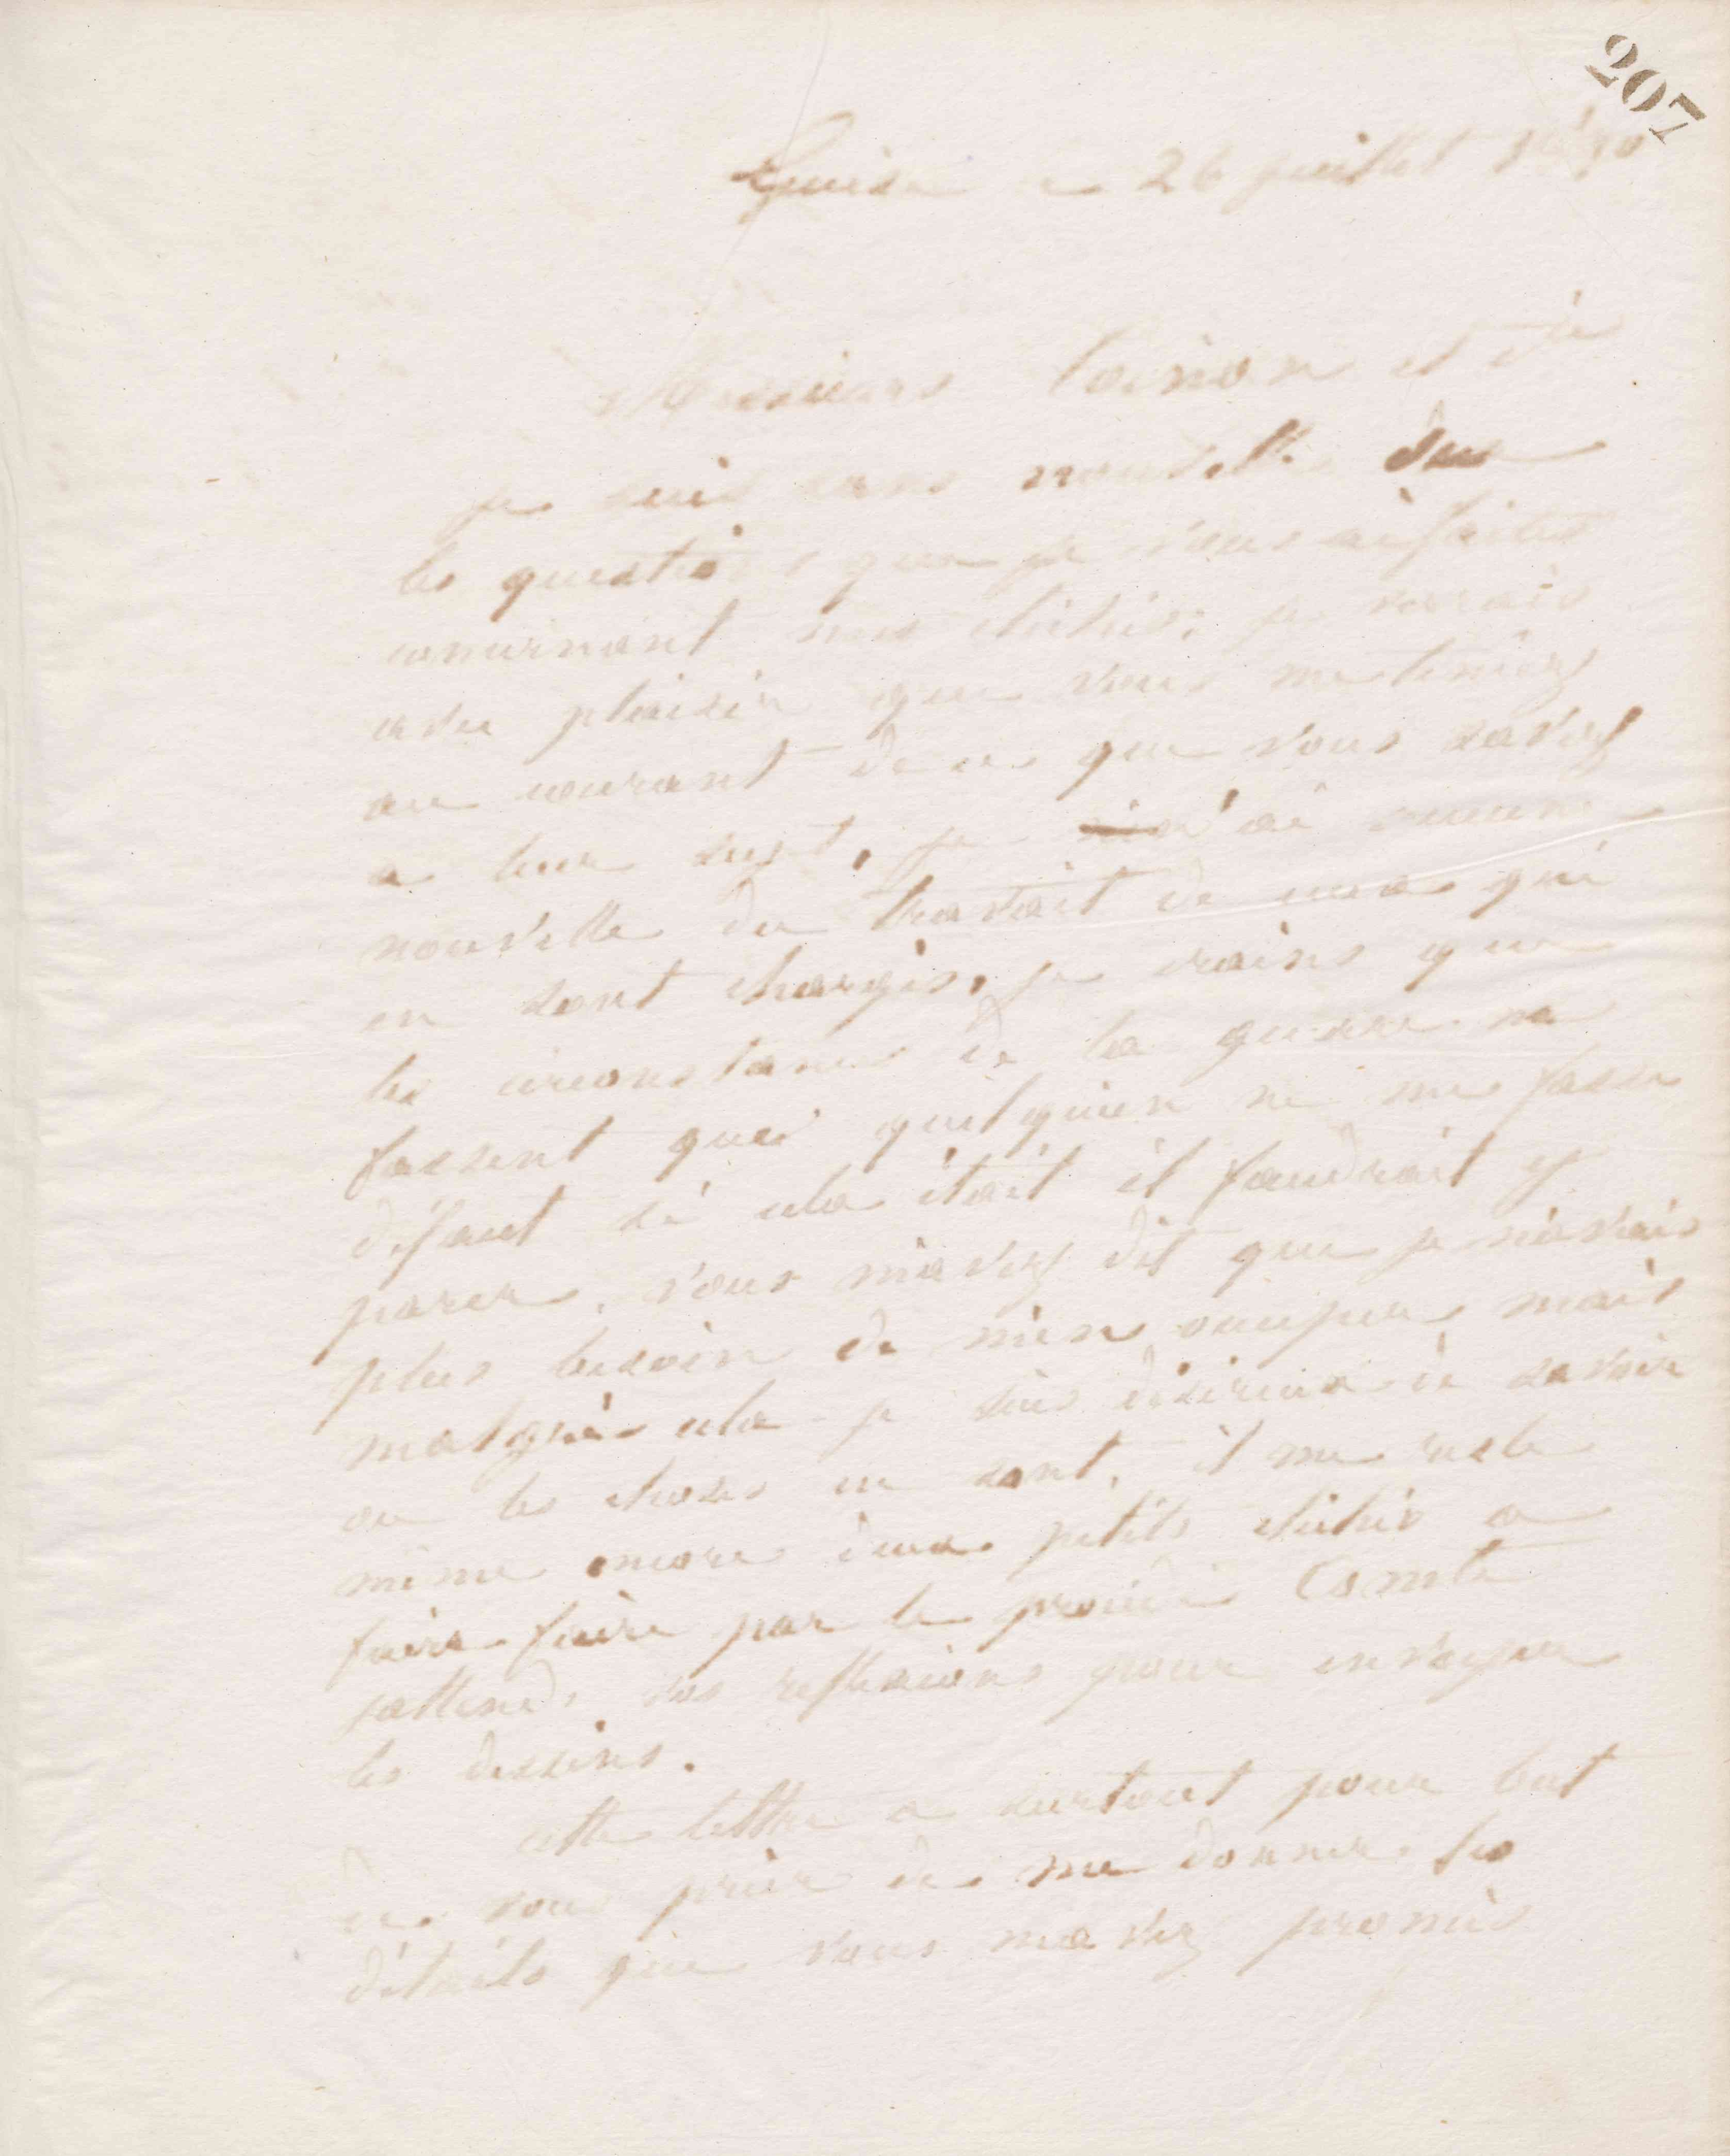 207
Guise le 26 juillet 1870
Messieurs Toinon et Cie
je suis sans nouvelle sur
les questions que je vous ai faites
concernant mes clichés; je verrais
avec plaisir que vous me teniez
au courant de ce que vous savez
a leur sujet, je n'ai aucune
nouvelle du travail de ceux qui
en sont chargés, je crains que
les circonstances de la guerre ne
fassent que quelqu'un ne me fasse
défaut si cela était il faudrait y
parer. vous m'avez dit que je n'avais
plus besoin de m'en occuper mais
malgré cela je suis désireux de savoir
ou les choses en sont. il me reste
même encore deux petits clichés a
faire faire par le procédé Comte
j'attends vos reflexions pour envoyer
les dessins.
cette lettre a surtout pour but
de vous prier de me donner les
détails que vous m'avez promis